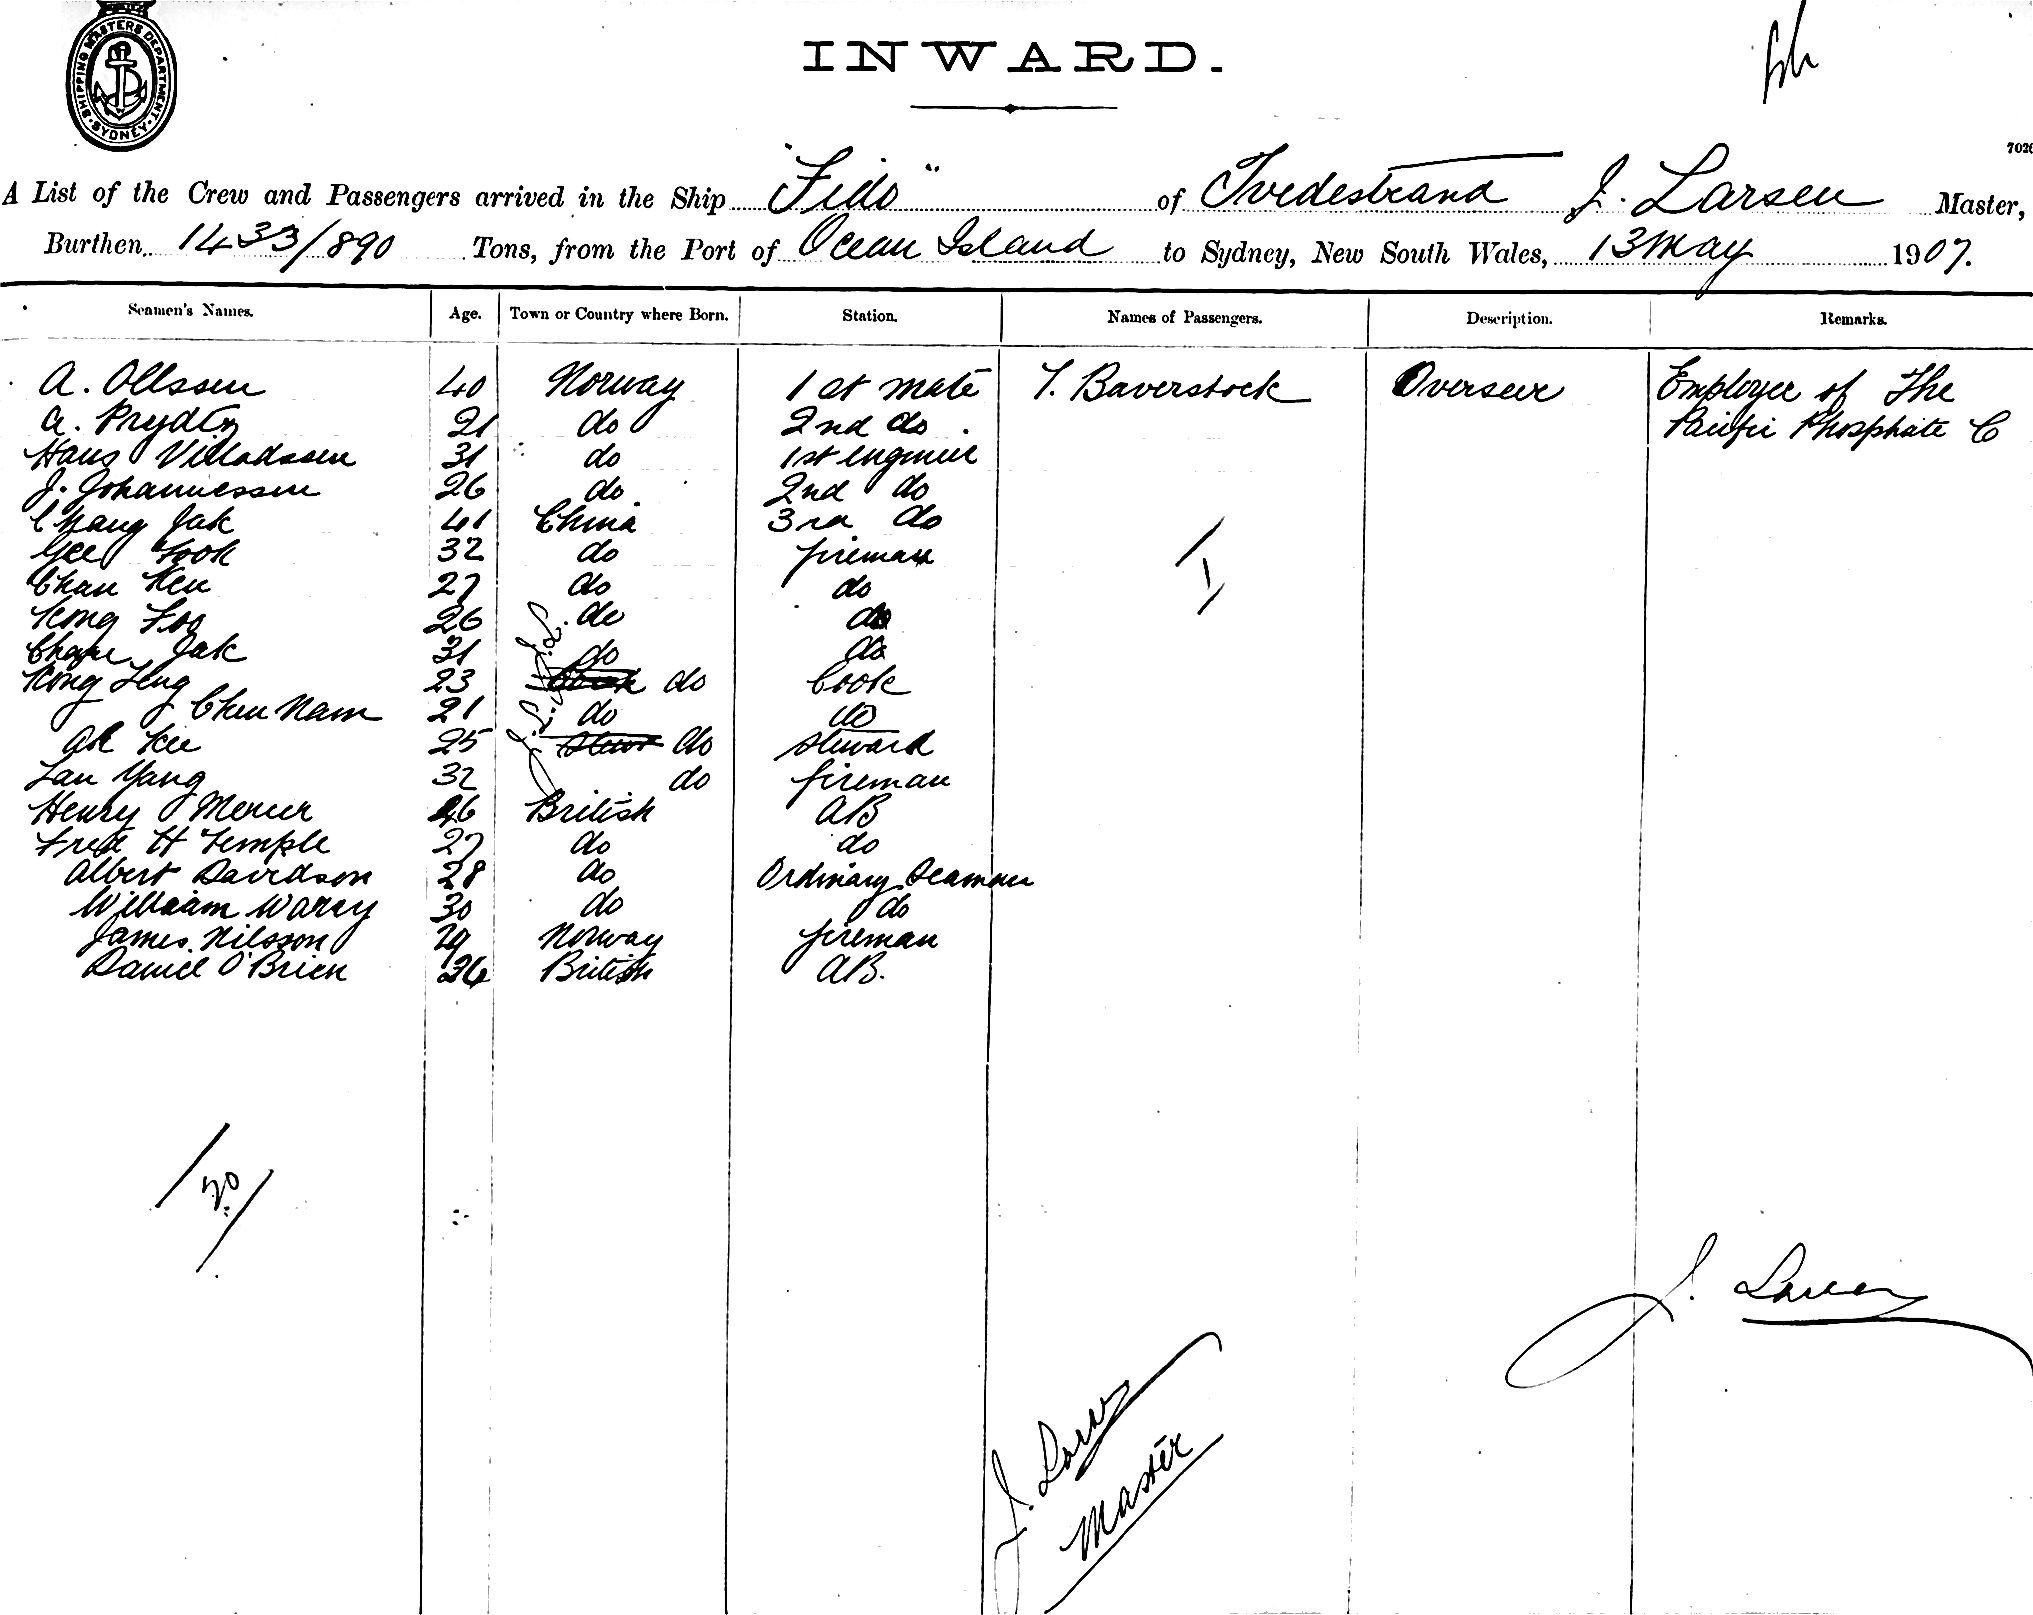 SHIPPING MASTERS DEPARTMENT SYDNEY
INWARD.
7026
A List of the Crew and Passengers arrived in the Ship "Fido" of Tvedestrand J. Larsen Master,
Burthen 1433/890 Tons, from the Port of Ocean Island to Sydney, New South Wales, 13 May 1907.
Seamen's Names. Age. Town or Country where Born. Station. Names of Passengers. Description. Remarks.
A. Ollssen 40 Norway 1st mate T. Baverstock Overseer Employee of The
A. Prydtz 21 do 2nd do Pacific Phosphate C
Hans Villadssen 31 do 1st engineer
J. Johannessen 26 do 2nd do
Chang Jak 41 China 3rd do
Gee Fook 32 do fireman
Chan Ken 27 do do
Kong Foo 26 do do
Chan Jak 31 do do
Kong Seng 23 do Cook
Chen Nam 21 do do
Ah Kee 25 do steward
Lan Yang 32 do fireman
Henry Mercer 46 British AB
Fred H Temple 27 do do
Albert Davidson 28 do Ordinary Seaman
William Warry 30 do do
James Nilsson 29 Norway fireman
Daniel O'Brien 36 British AB.
J.L.
J.L.
1
20
J. Larsen
J. Larsen
Master